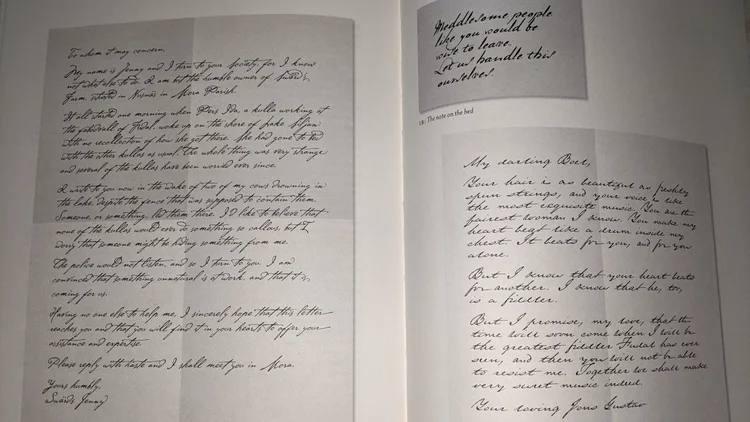 To whom it may concern,
My name is Jenny and I turn to your Society, for I know
not what else to do. I am but the humble owner of Swärds
Farm, situated in Nusnäs in Mora Parish.
It all started one morning when Pers Ida, a kulla working at
the fäbodvall of Fudal, woke up on the shore of Lake Siljan
with no recollection of how she got there. She had gone to bed
with the other kullas as usual. The whole thing was very strange
and several of the kullas have been worried ever since.
I write to you now in the wake of two of my cows drowning in
the lake, despite the fence that was supposed to contain them.
Someone, or something, led them there. I'd like to believe that
none of the kullas would ever do something so callous, but I
worry that someone might be hiding something from me.
The police would not listen, and so I turn to you. I am
convinced that something unnatural is at work, and that it is
coming for us.
Having no one else to help me, I sincerely hope that this letter
reaches you and that you will find it in your hearts to offer your
assistance and expertise.
Please reply with haste and I shall meet you in Mora.
Yours humbly,
Swärds Jenny
Meddlesome people
like you would be
wise to leave.
Let us handle this
ourselves.
The note on the bed
My darling
Your hair is as beautiful as freshly
spun strings, and your voice is like
the most exquisite music. You are the
fairest woman I know. You make my
heart beat like a drum inside my
chest. It beats for you, and for you
alone.
But I know that your heart beats
for another. I know that he, too,
is a fiddler.
But I promise, my love, that the
time will soon come when I will be
the greatest fiddler Fudal has ever
seen, and then you will not be able
to resist me. Together we shall make
very sweet music indeed.
Your loving Jons Gustav